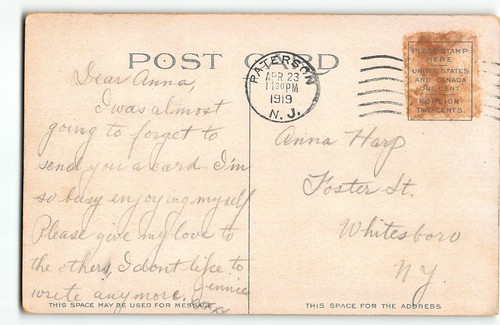 POST CARD
PATERSON
APR 23
1130PM
1919
N. J.
PLACE STAMP
HERE
UNITED STATES
AND CANADA
ONE CENT
FOREIGN
TWO CENTS.
Dear Anna,
I was almost
going to forget to
send you a card. I'm
so busy enjoying myself
Please give my love to
the others, I dont like to
write anymore.
Jennie
THIS SPACE MAY BE USED FOR MESSAGE
Anna Harp
Foster St.
Whitesboro
N.Y.
THIS SPACE FOR THE ADDRESS